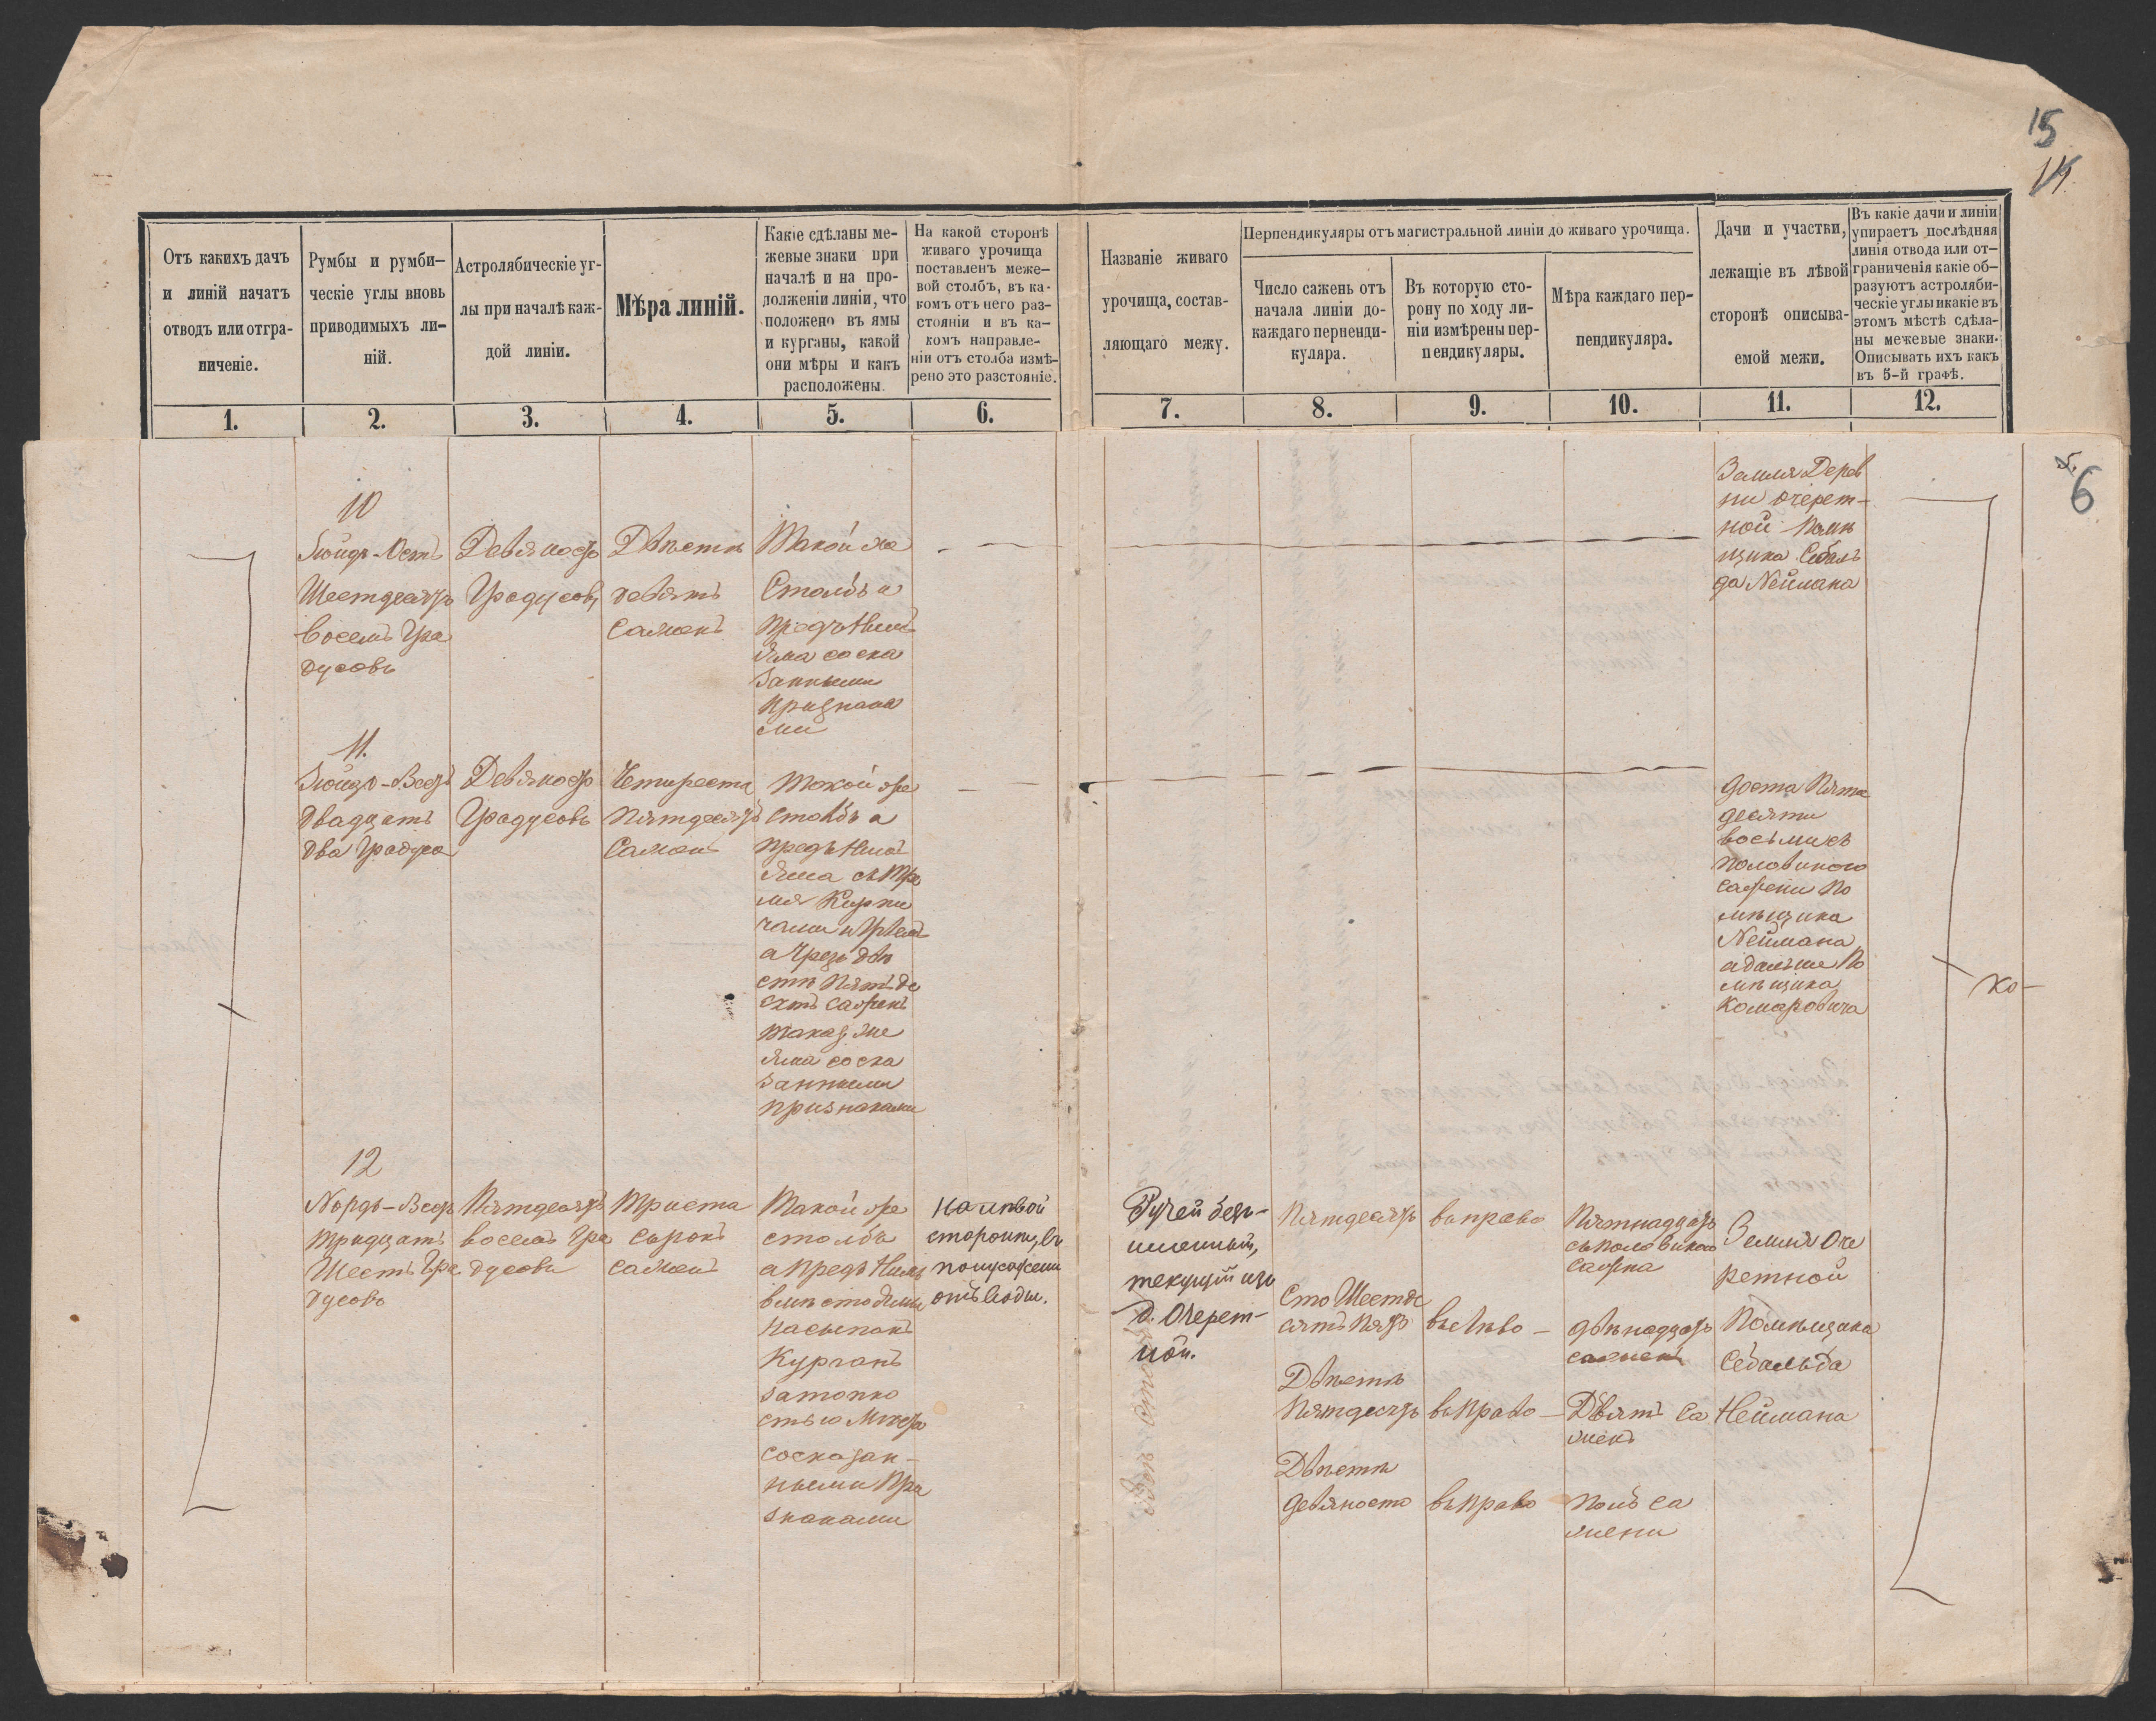 15
14.
Отъ какихъ дачъ
и линій начатъ
отводъ или отгра-
ниченіе.
Румбы и румби-
ческіе углы вновь
приводимыхъ ли-
ній.
Астролябическіе уг-
лы при началѣ каж-
дой линіи.
Мѣра линій.
Какіе сдѣланы ме-
жевые знаки при
началѣ и на про-
должении линіи, что
положено въ ямы
и курганы, какой
они мѣры и какъ
расположены.
На какой сторонѣ
живаго урочища
поставленъ меже-
вой столбъ, въ ка-
комъ отъ него раз-
стояніи и въ ка-
комъ направле-
ніи отъ столба измѣ-
рено это разстояніе.
Названіе живаго
урочища, состав-
ляющаго межу.
Перпендикуляры отъ магистральной линіи до живаго урочища.
Число сажень отъ
начала линіи до-
каждаго перпенди-
куляра.
Въ которую сто-
рону по ходу ли-
ніи измѣрены пер-
пендикуляры.
Мѣра каждаго пер-
пендикуляра.
Дачи и участки,
лежащіе въ лѣвой
сторонѣ описыва-
емой межи.
Въ какіе дачи и линіи
упираетъ послѣдняя
линія отвода или от-
граниченія какіе об-
разуютъ астроляби-
ческіе углы и какіе въ
этомъ мѣстѣ сдѣла-
ны межевые знаки.
Описывать ихъ какъ
въ 5-й графѣ.
1.
2.
3.
4.
5.
6.
7.
8.
9.
10.
11.
12.
6
10
Зюйдъ-Остъ
Шестдесятъ
восемь Гра
дусовъ
Девяносто
Градусовъ
Двѣсти
девять
сажень
Такой же
Столбъ а
предъ Нимъ
Яма со ска
занными
признака
ми
Земля Дерев
ни Очерет-
ной Помѣ
щика Себаль
да Неймана
11.
Зюйдъ-Вестъ
Двадцать
два Градуса
Девяносто
Градусовъ
Четыреста
Пятдесятъ
Сажень
Такой же
столбъ а
предъ Нимъ
Яма съ Тре
мя Кирпи
чами и Углемъ
а Чрезъ двѣ
сти Пятьде
сятъ сажень
такая же
Яма со ска
занными
признаками
доста Пяти
десяти
восьми съ
половиною
сажени По
мѣщика
Неймана
а дальше По
мѣщика
Комаровича
Ко-
12
Нордъ-Вестъ
тридцать
Шесть Гра
дусовъ
Пятдесятъ
восемь Гра
дусовъ
Триста
сорокъ
сажень
Такой же
столбъ
а предъ Нимъ
вмѣсто Ямы
насыпанъ
Курганъ
за топко
стью Мѣста
со сказан-
ными При
знаками
На лѣвой
сторонѣ, въ
полусажени
отъ воды.
Ручей безъ-
имянный,
текущій изъ
д. Очерет-
ной.
Пятдесятъ
вправо
Пятнадцать
съ половиною
сажень
Сто Шестде
сятъ Пять
влѣво —
двѣнадцать
сажень
Двѣсти
Пятдесятъ
вправо —
Девять са
жень
Двѣсти
девяносто
вправо
Полъ са
жени
Земля Оче
ретной
Помѣщика
Себальда
Неймана